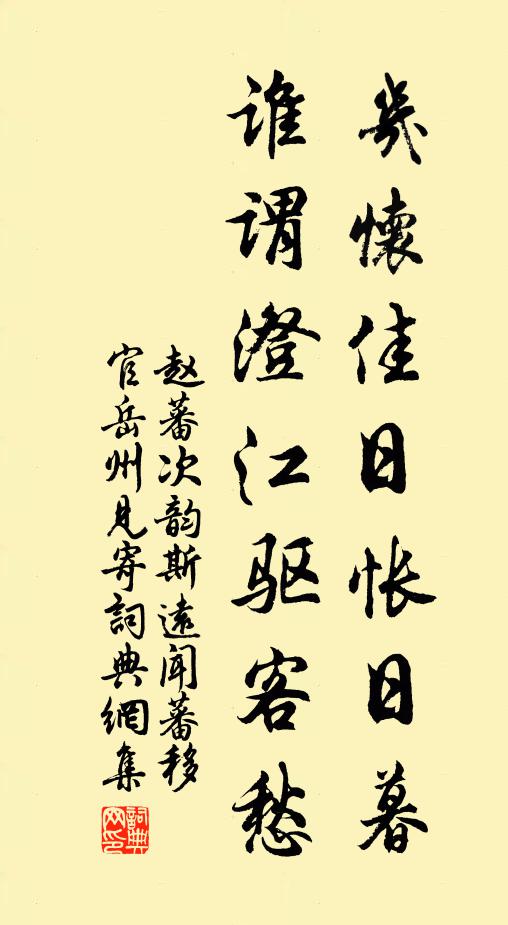 几怀佳日怅日暮
谁谓澄江驱客愁
赵蕃次韵斯遠闻蕃移
官岳州見寄詞典網集
詞典
网印